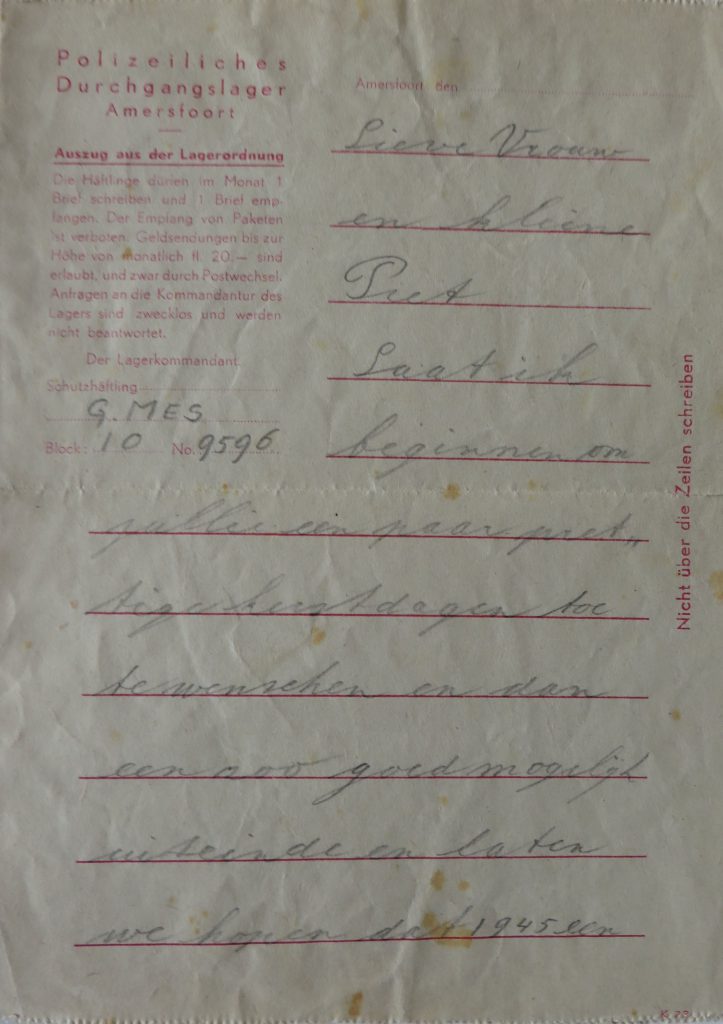 Polizeiliches
Durchgangslager
Amersfoort
Auszug aus der Lagerordnung
Die Häftlinge dürfen im Monat 1
Brief schreiben und 1 Brief emp-
fangen. Der Empfang von Paketen
ist verboten. Geldsendungen bis zur
Höhe von monatlich fl. 20.— sind
erlaubt, und zwar durch Postwechsel.
Anfragen an die Kommandantur des
Lagers sind zwecklos und werden
nicht beantwortet.
Der Lagerkommandant.
Schutzhäftling
G. MES
Block: 10 No. 9596
Amersfoort den
Lieve Vrouw
en kleine
Piet
Laat ik
beginnen om
jullie een paar pret„
tige kerstdagen toe
te wenschen en dan
een zoo goed mogelijk
uiteinde en laten
we hopen dat 1945 een
Nicht über die Zeilen schreiben